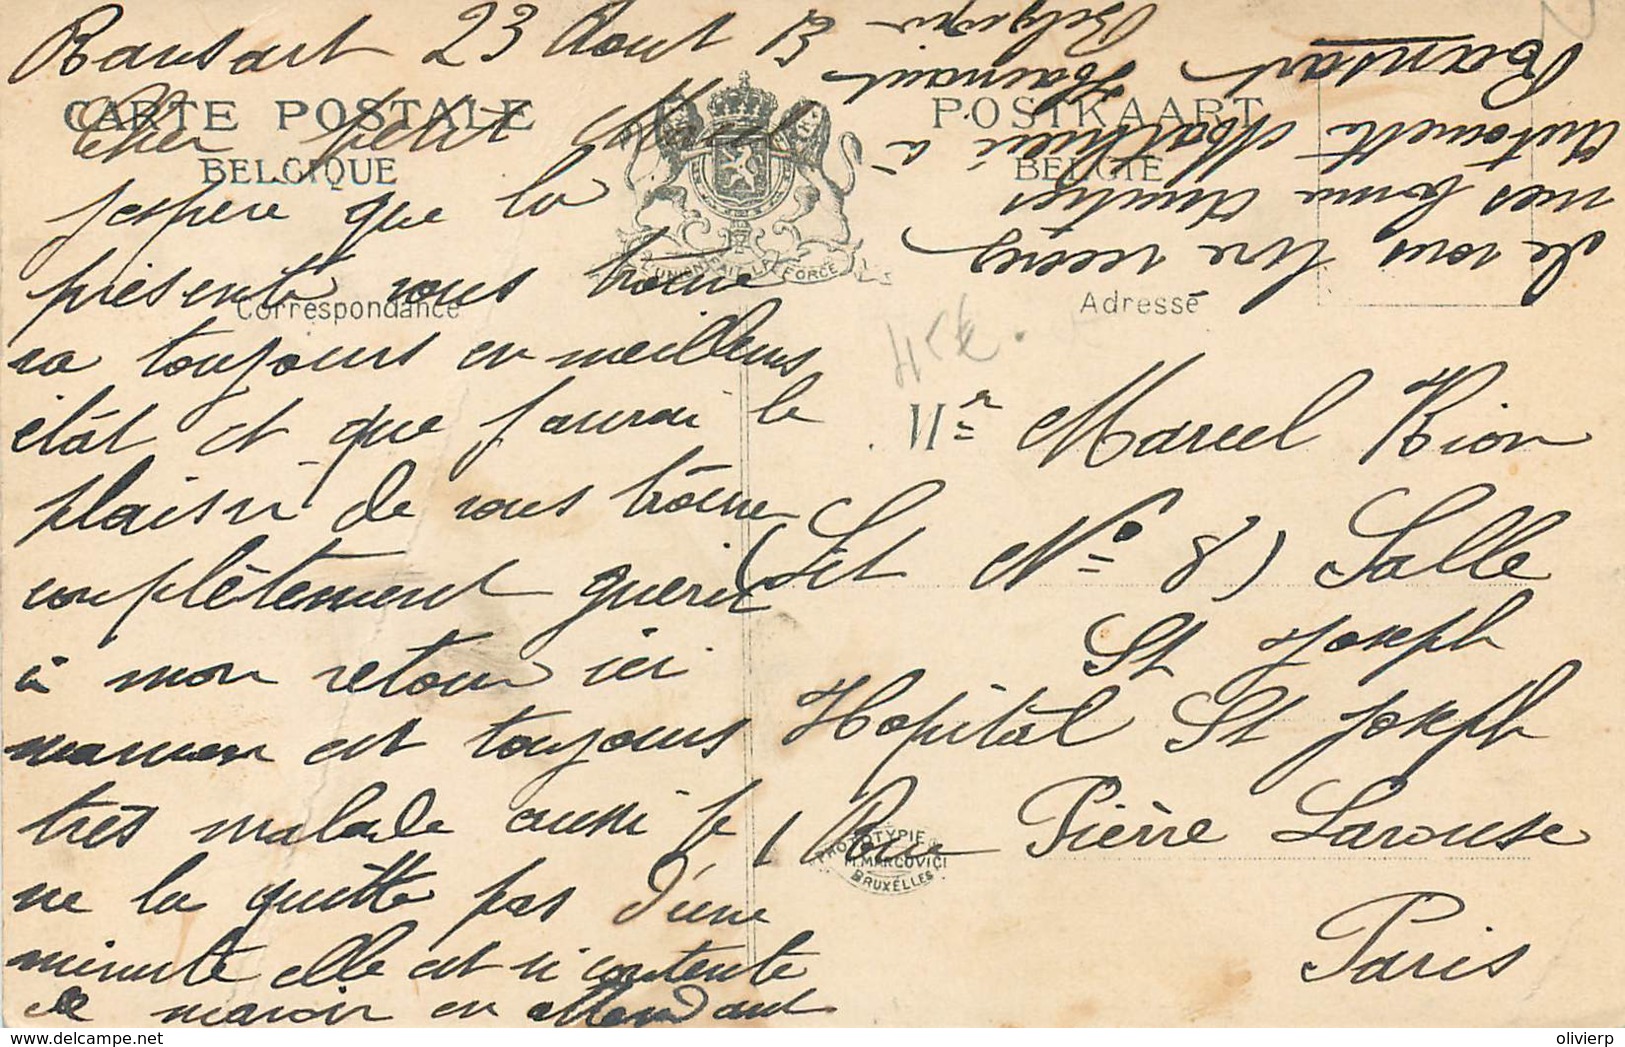 Ransart 23 Aout 13
CARTE POSTALE POSTKAART
Cher petit Marcel
BELGIQUE BELGIE
j'espère que la
présente vous trouve
L'UNION FAIT LA FORCE
Correspondance Adresse
va toujours en meilleurs
état et que j'aurai le
plaisir de vous trouve
complètement guerit
à mon retour ici
maman est toujours
très malade aussi je
ne la quitte pas d'une
minute elle est si contente
de m'avoir en attendant
de vous lire recevez
mes bonne Amitiés
Antoinette Mathieu à
Ransart Hainaut
Belgique
Mr Marcel Rion
(Lit No 8) Salle
St Joseph
Hopital St Joseph
1 Rue Pièrre Larouse
Paris
PHOTOTYPIE
M. MARCOVICI
BRUXELLES
olivierp